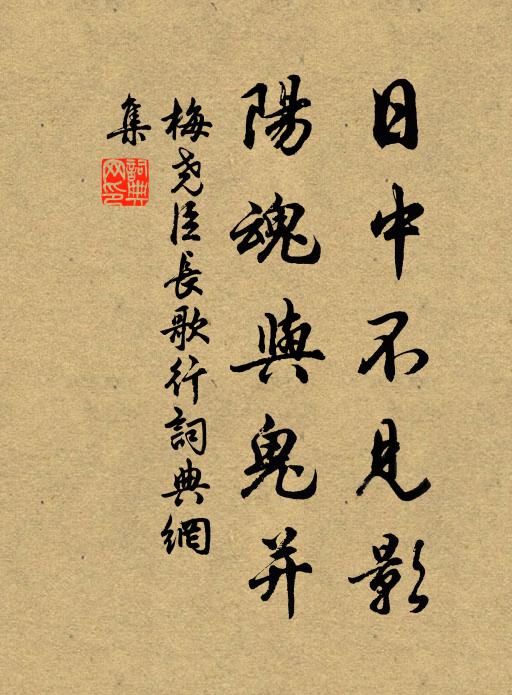 日中不見影
陽魂與鬼并
梅尧臣長歌行詞典網
集
詞典
网印